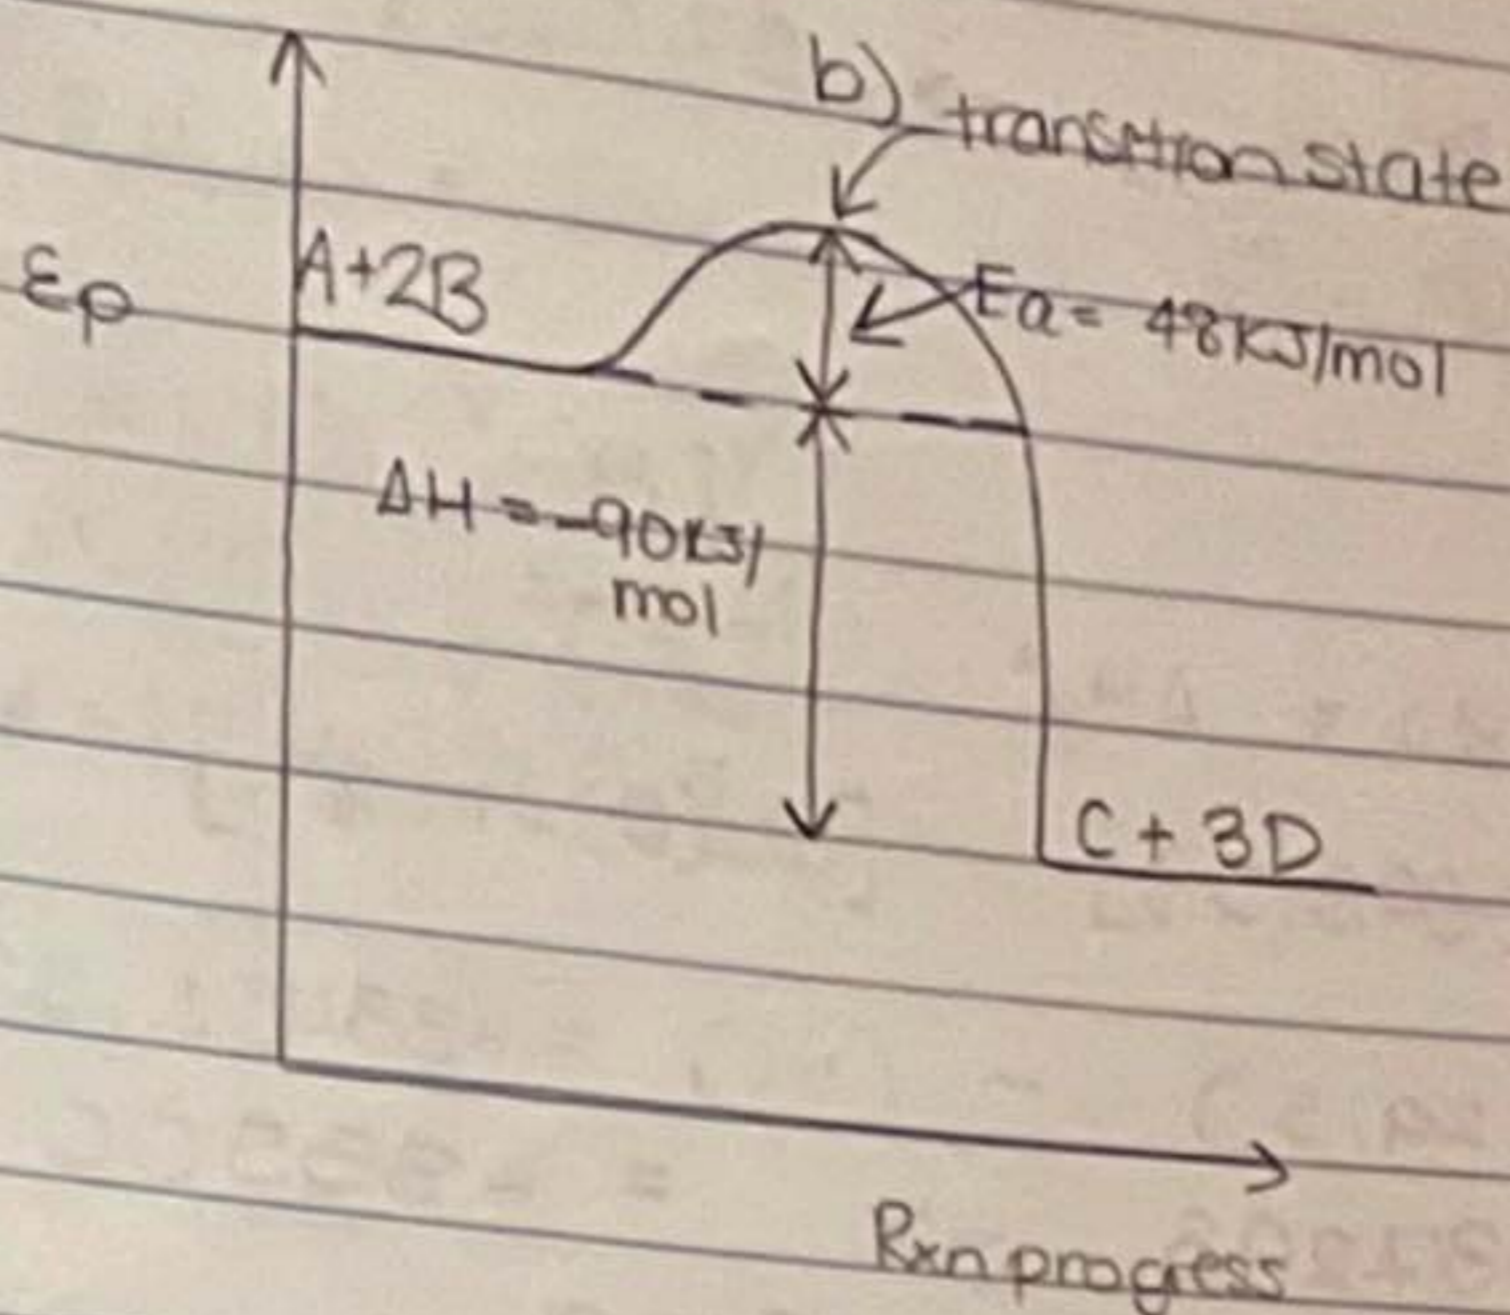 b) transition state
A+2B
Ep
Ea = 48KJ/mol
ΔH = -90KJ/
mol
C + 3D
Rxn progress